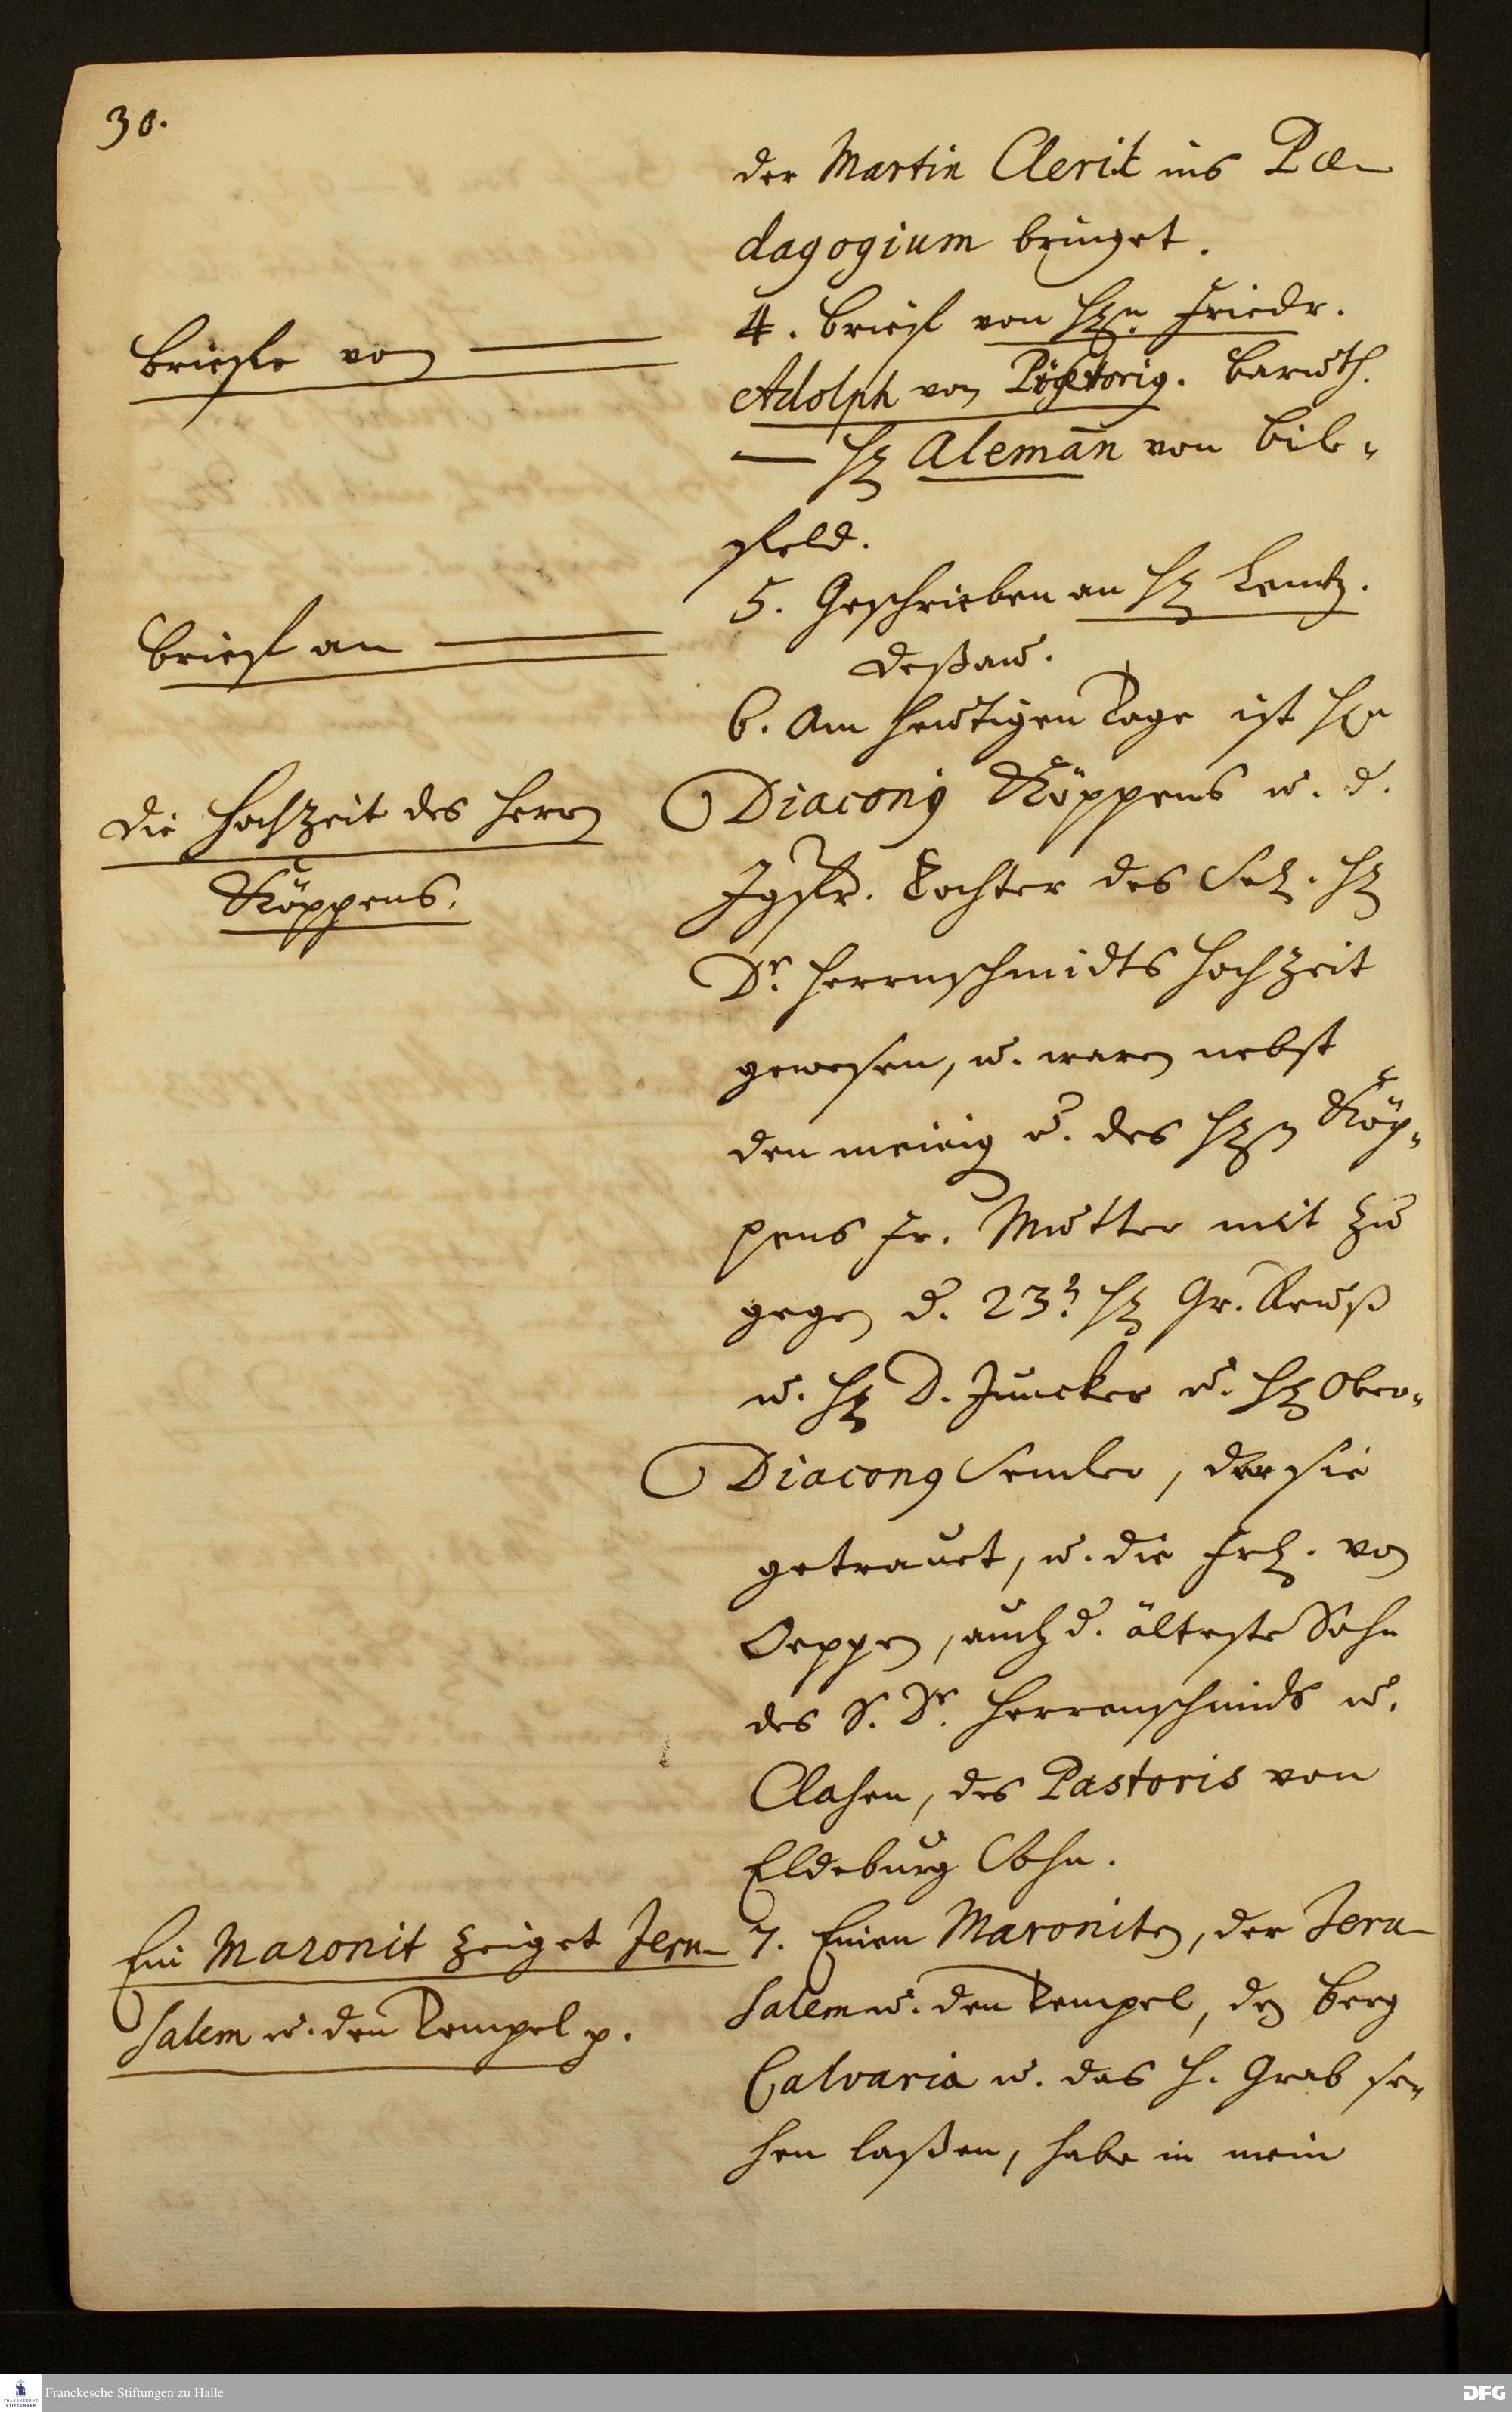 30.
der Martin Clerik ins Pæ-
dagogium bringet.
Briefe von
4. Brief von H. Friedr.
Adolph von Pistorig. Baruth.
— H. Alemañ von Bile-
feld.
Brief an
5. Geschrieben an H.
Deßau.
6. Am heutigen Tage ist H.
Die Hochzeit des Herrn
Köppens.
Diaconi Köppens u. d.
Jgfr. Tochter des Sel. H.
Dr. Herrnschmidts Hochzeit
gewesen, u. waren nebst
den meinig u. des H. Köp-
pens Fr. Mutter mit zu
gegen d. 23. H. Gr. Reuß
u. H. D. Juncker u. H. Ober-
Diaconus Semler, der sie
getrauet, u. die Frl. von
Oeppen, auch d. älteste Sohn
des S. Dr. Herrenschmids u.
Clasen, des Pastoris von
Eldeburg Sohn.
Ein Maronit zeiget Jeru-
salem u. den Tempel p.
7. Einen Maroniten, der Jeru-
salem u. den Tempel, den Berg
Calvaria u. das H. Grab se-
hen laßen, habe in mein
Franckesche Stiftungen zu Halle
DFG